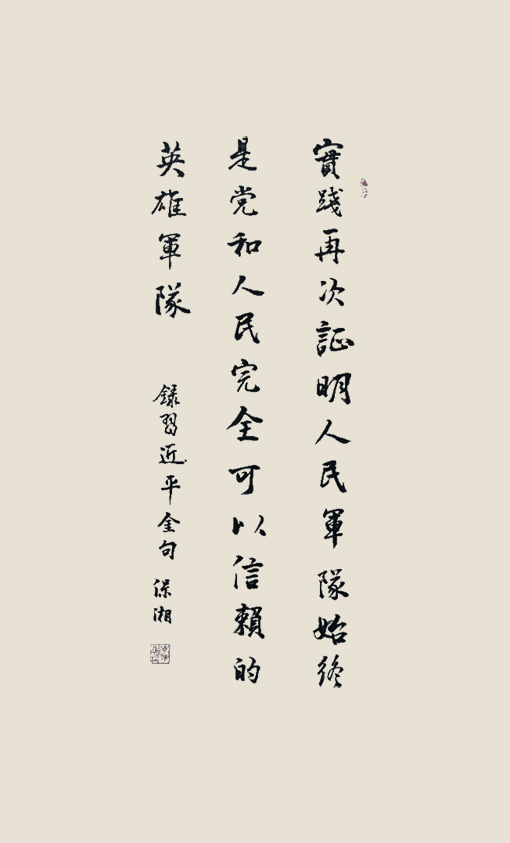 實踐再次証明人民軍隊始終
是党和人民完全可以信賴的
英雄軍隊
錄習近平金句 保湘